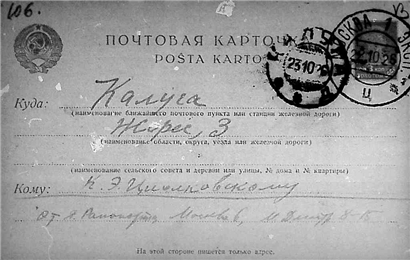 106.
ПОЧТОВАЯ КАРТОЧК
POŜTA KARTO
23.10.28
МОСКВА 1
23.10.28
Ц
Куда: Калуга
(наименование ближайшего почтового пункта или станции железной дороги)
Жорес, 3
(наименование области, округа, уезда или железной дороги)
(наименование сельского совета и деревни или улицы, № дома и № квартиры)
Кому: К. Э. Циолковскому
От Москва
На этой стороне пишется только адрес.